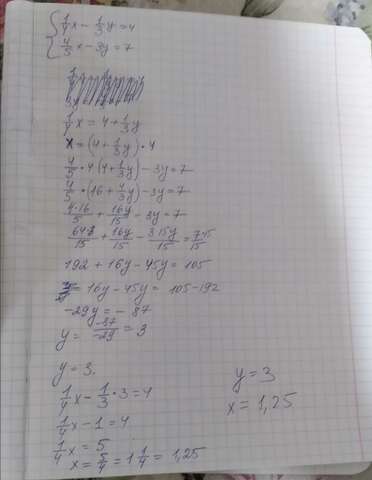 { 1/4x - 1/3y = 4
4/5x - 3y = 7
1/4x = 4 + 1/3y
x = (4 + 1/3y) · 4
4/5 · 4(4 + 1/3y) - 3y = 7
4/5 · (16 + 4/3y) - 3y = 7
4·16/5 + 16y/15 - 3y = 7
64·3/15 + 16y/15 - 3·15y/15 = 7·15/15
192 + 16y - 45y = 105
= 16y - 45y = 105 - 192
-29y = -87
y = -87/-29 = 3
y = 3.
1/4x - 1/3 · 3 = 4
1/4x - 1 = 4
1/4x = 5
x = 5/4 = 1 1/4 = 1,25
y = 3
x = 1,25